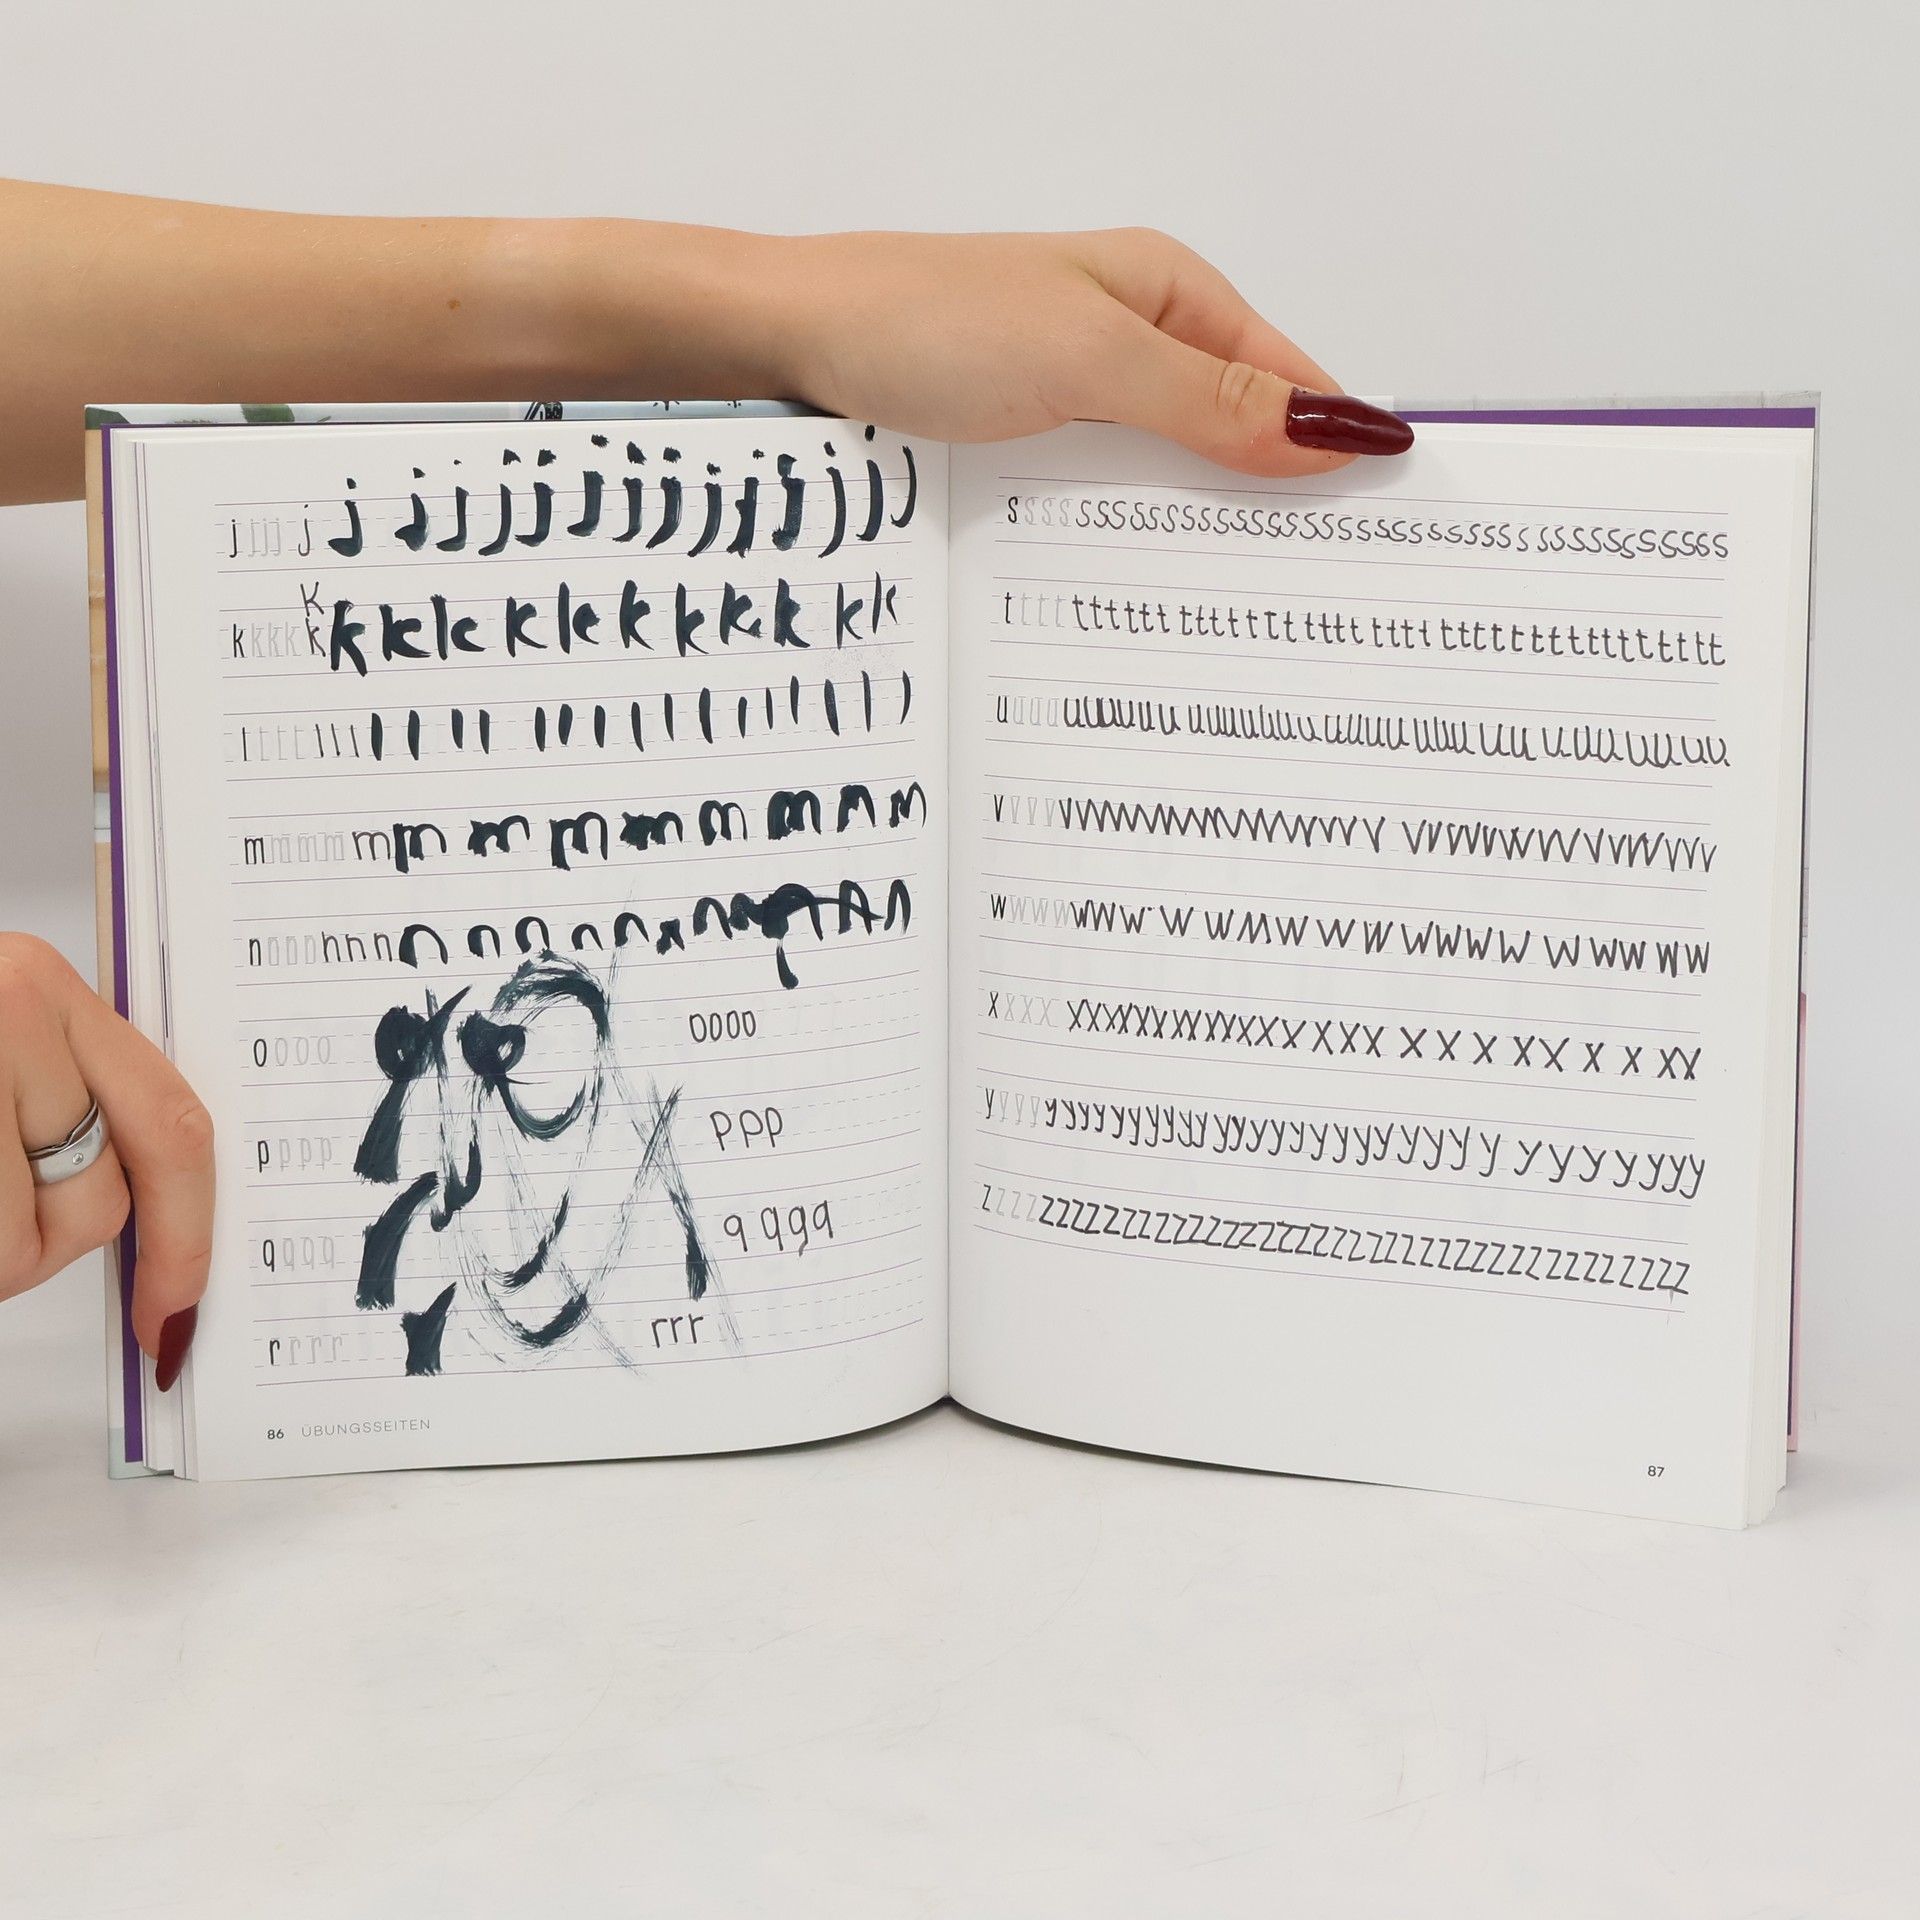 j j j j j j j j j j j j j j j j j j j
k k k k k k k k k k k k k k k k k k
l l l l l l l l l l l l l l l l l l l l l l
m m m m m m m m m m m m m m
n n n n n n n n n n n n n n n n n
o o o o oooo
p p p p ppp
q q q q qqqq
r r r r rrr
86 ÜBUNGSSEITEN
s s s s sssssssssssssssssssssssssssssssssssss
t t t t ttttttttttttttttttttttttttttttttttttt
u u u u uuuuuuuuuuuuuuuuuuuuuuuuuuuuuu
v v v v vvvvvvvvvvvvvvvvvvvvvvvvvvvvvv
w w w w wwwwwwwwwwwwwwwwwwwww
x x x x xxxxxxxxxxxxxxxxxxxxxxxxxxx
y y y y yyyyyyyyyyyyyyyyyyyyyyyyyyyyyy
z z z z zzzzzzzzzzzzzzzzzzzzzzzzzzzzzzzzzzz
87